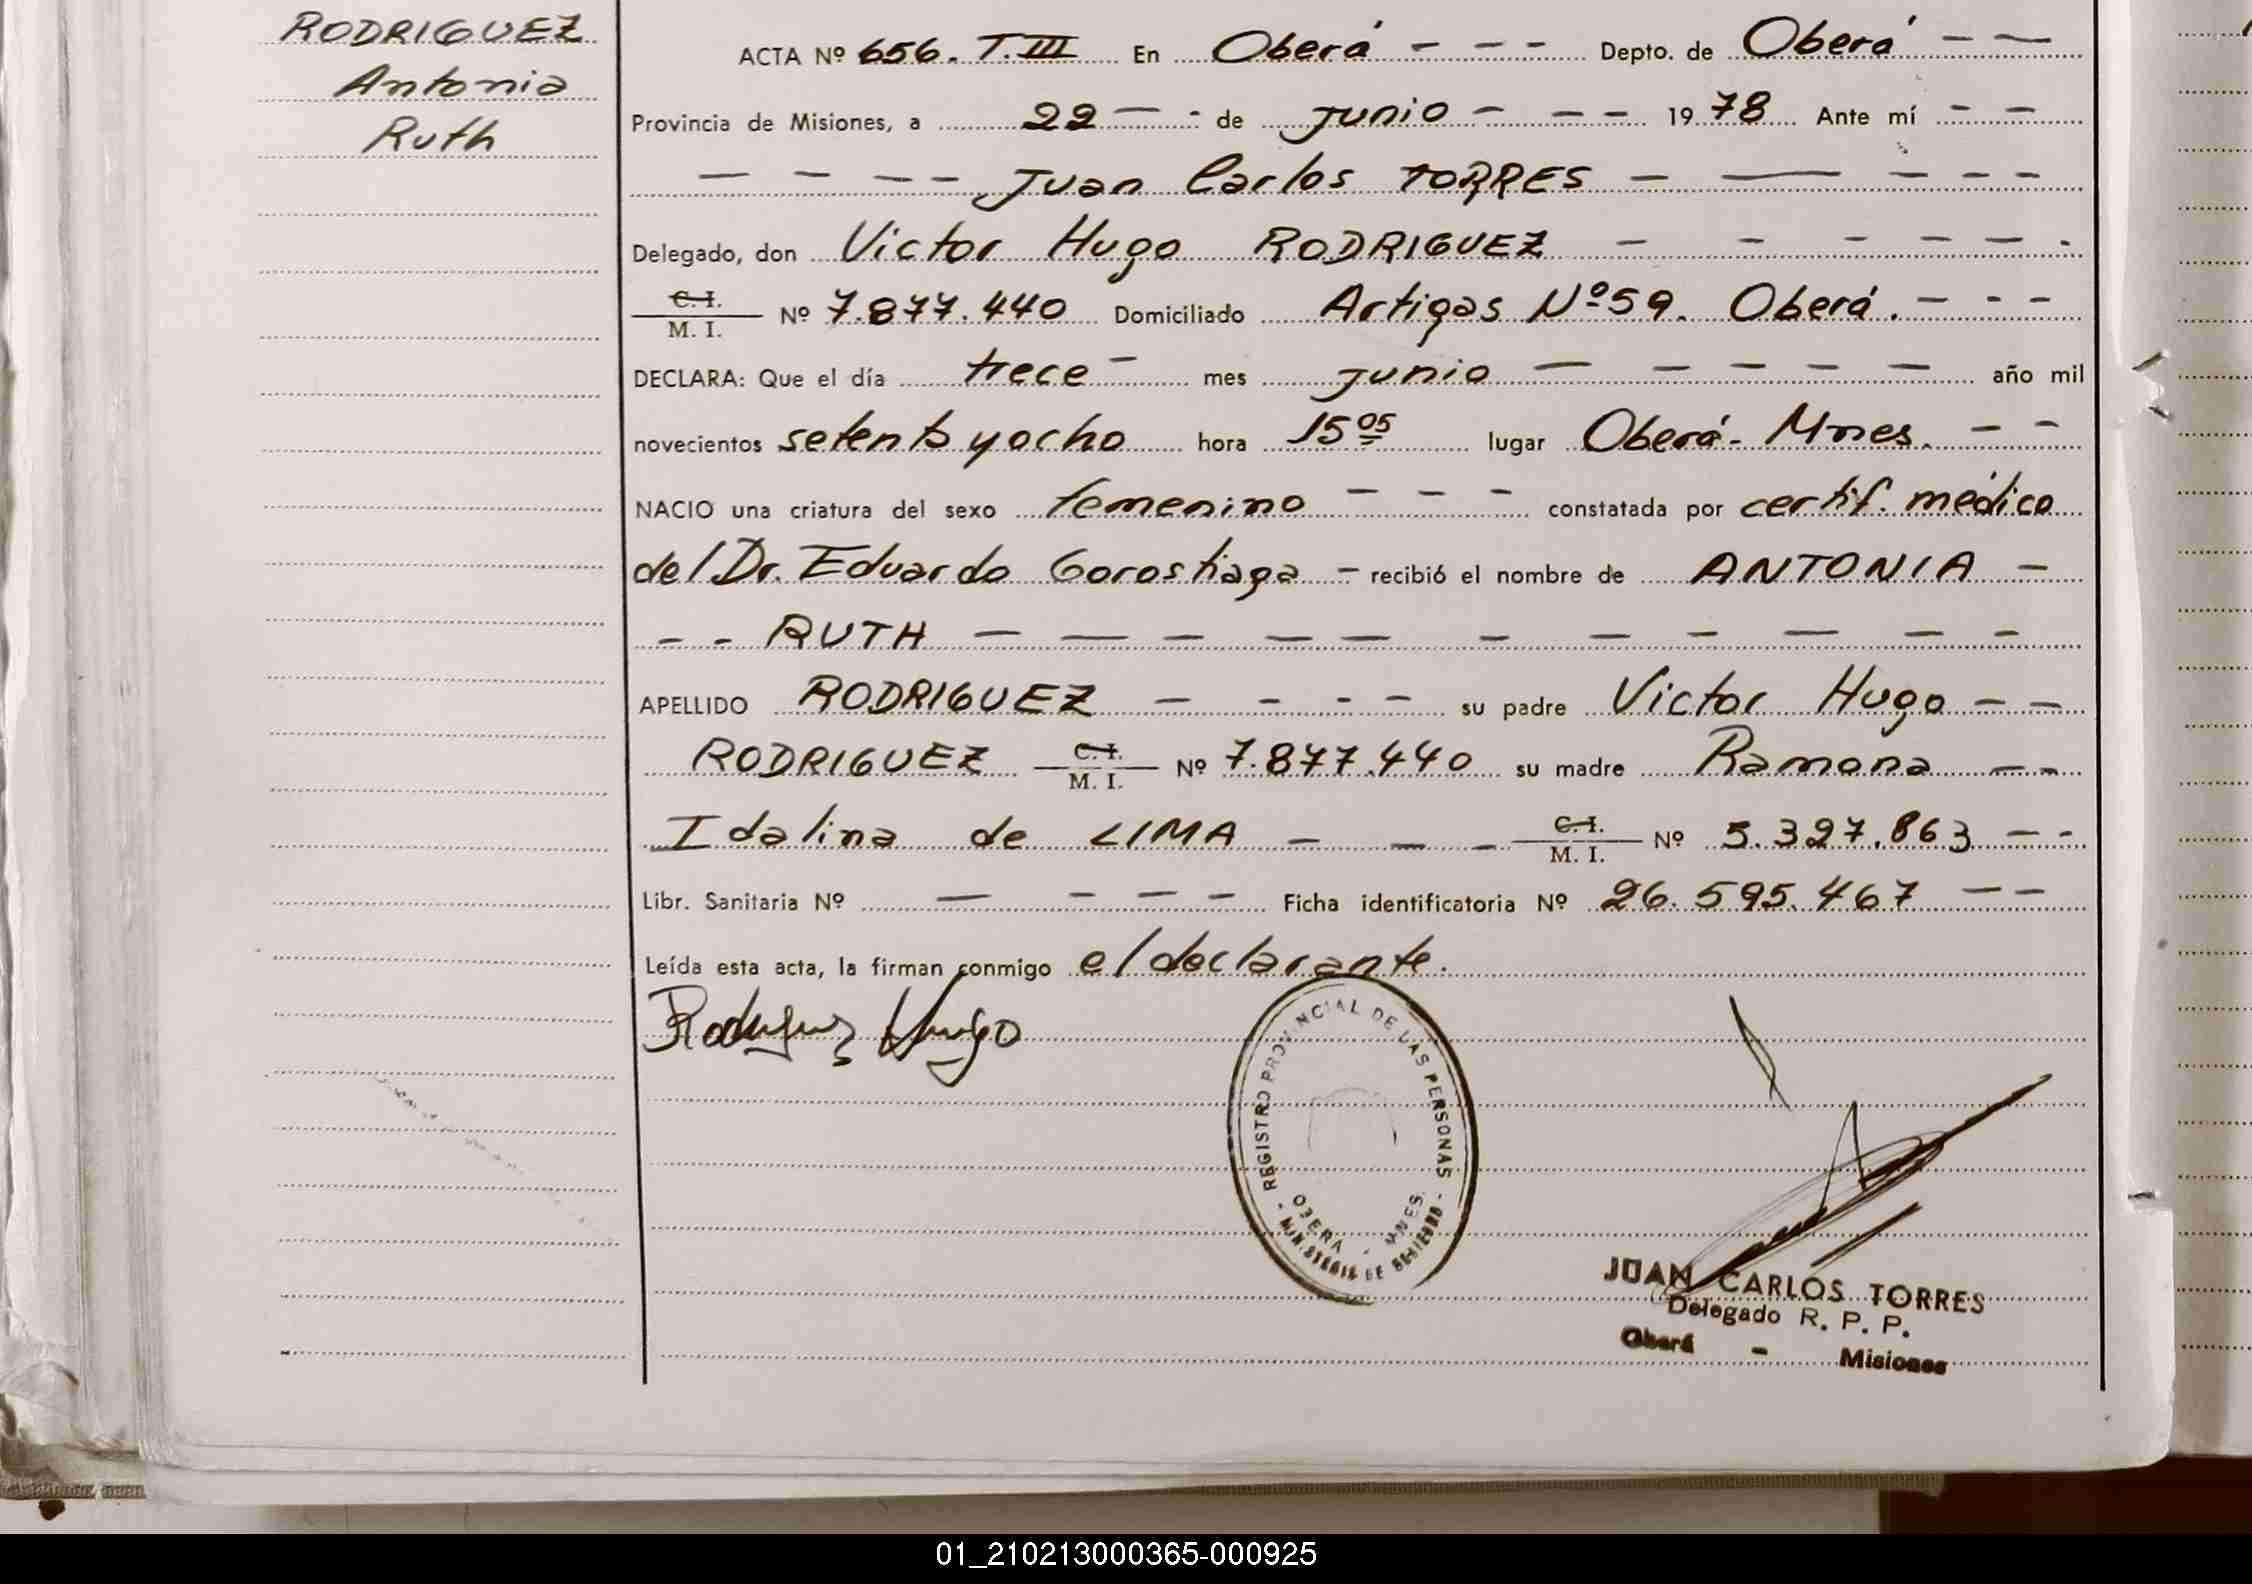 RODRIGUEZ
Antonia
Ruth
ACTA Nº 656. T.III En Oberá - - - - Depto. de Oberá - -
Provincia de Misiones, a 22 - - de junio - - - 1978 Ante mí - -
- - - - Juan Carlos TORRES - - - - -
Delegado, don Victor Hugo RODRIGUEZ - - - - - -
C. I. / M. I. Nº 7.877.440 Domiciliado Artigas Nº 59. Oberá. - - -
DECLARA: Que el día trece - mes junio - - - - - año mil
novecientos setenta y ocho hora 15 05 lugar Oberá - Mnes. - -
NACIO una criatura del sexo femenino - - - constatada por certif. médico
del Dr. Eduardo Gorostiaga - recibió el nombre de ANTONIA -
- - RUTH - - - - - - - - - - -
APELLIDO RODRIGUEZ - - - - su padre Victor Hugo - -
RODRIGUEZ C. I. / M. I. Nº 7.877.440 su madre Ramona - -
Idalina de LIMA - - - C. I. / M. I. Nº 5.327.863 - -
Libr. Sanitaria Nº - - - - Ficha identificatoria Nº 26.595.467 - -
Leída esta acta, la firman conmigo el declarante.
Rodriguez Hugo
REGISTRO PROVINCIAL DE LAS PERSONAS
OBERA - MNES.
- MINISTERIO DE GOBIERNO -
JUAN CARLOS TORRES
Delegado R. P. P.
Oberá - Misiones
01_210213000365-000925